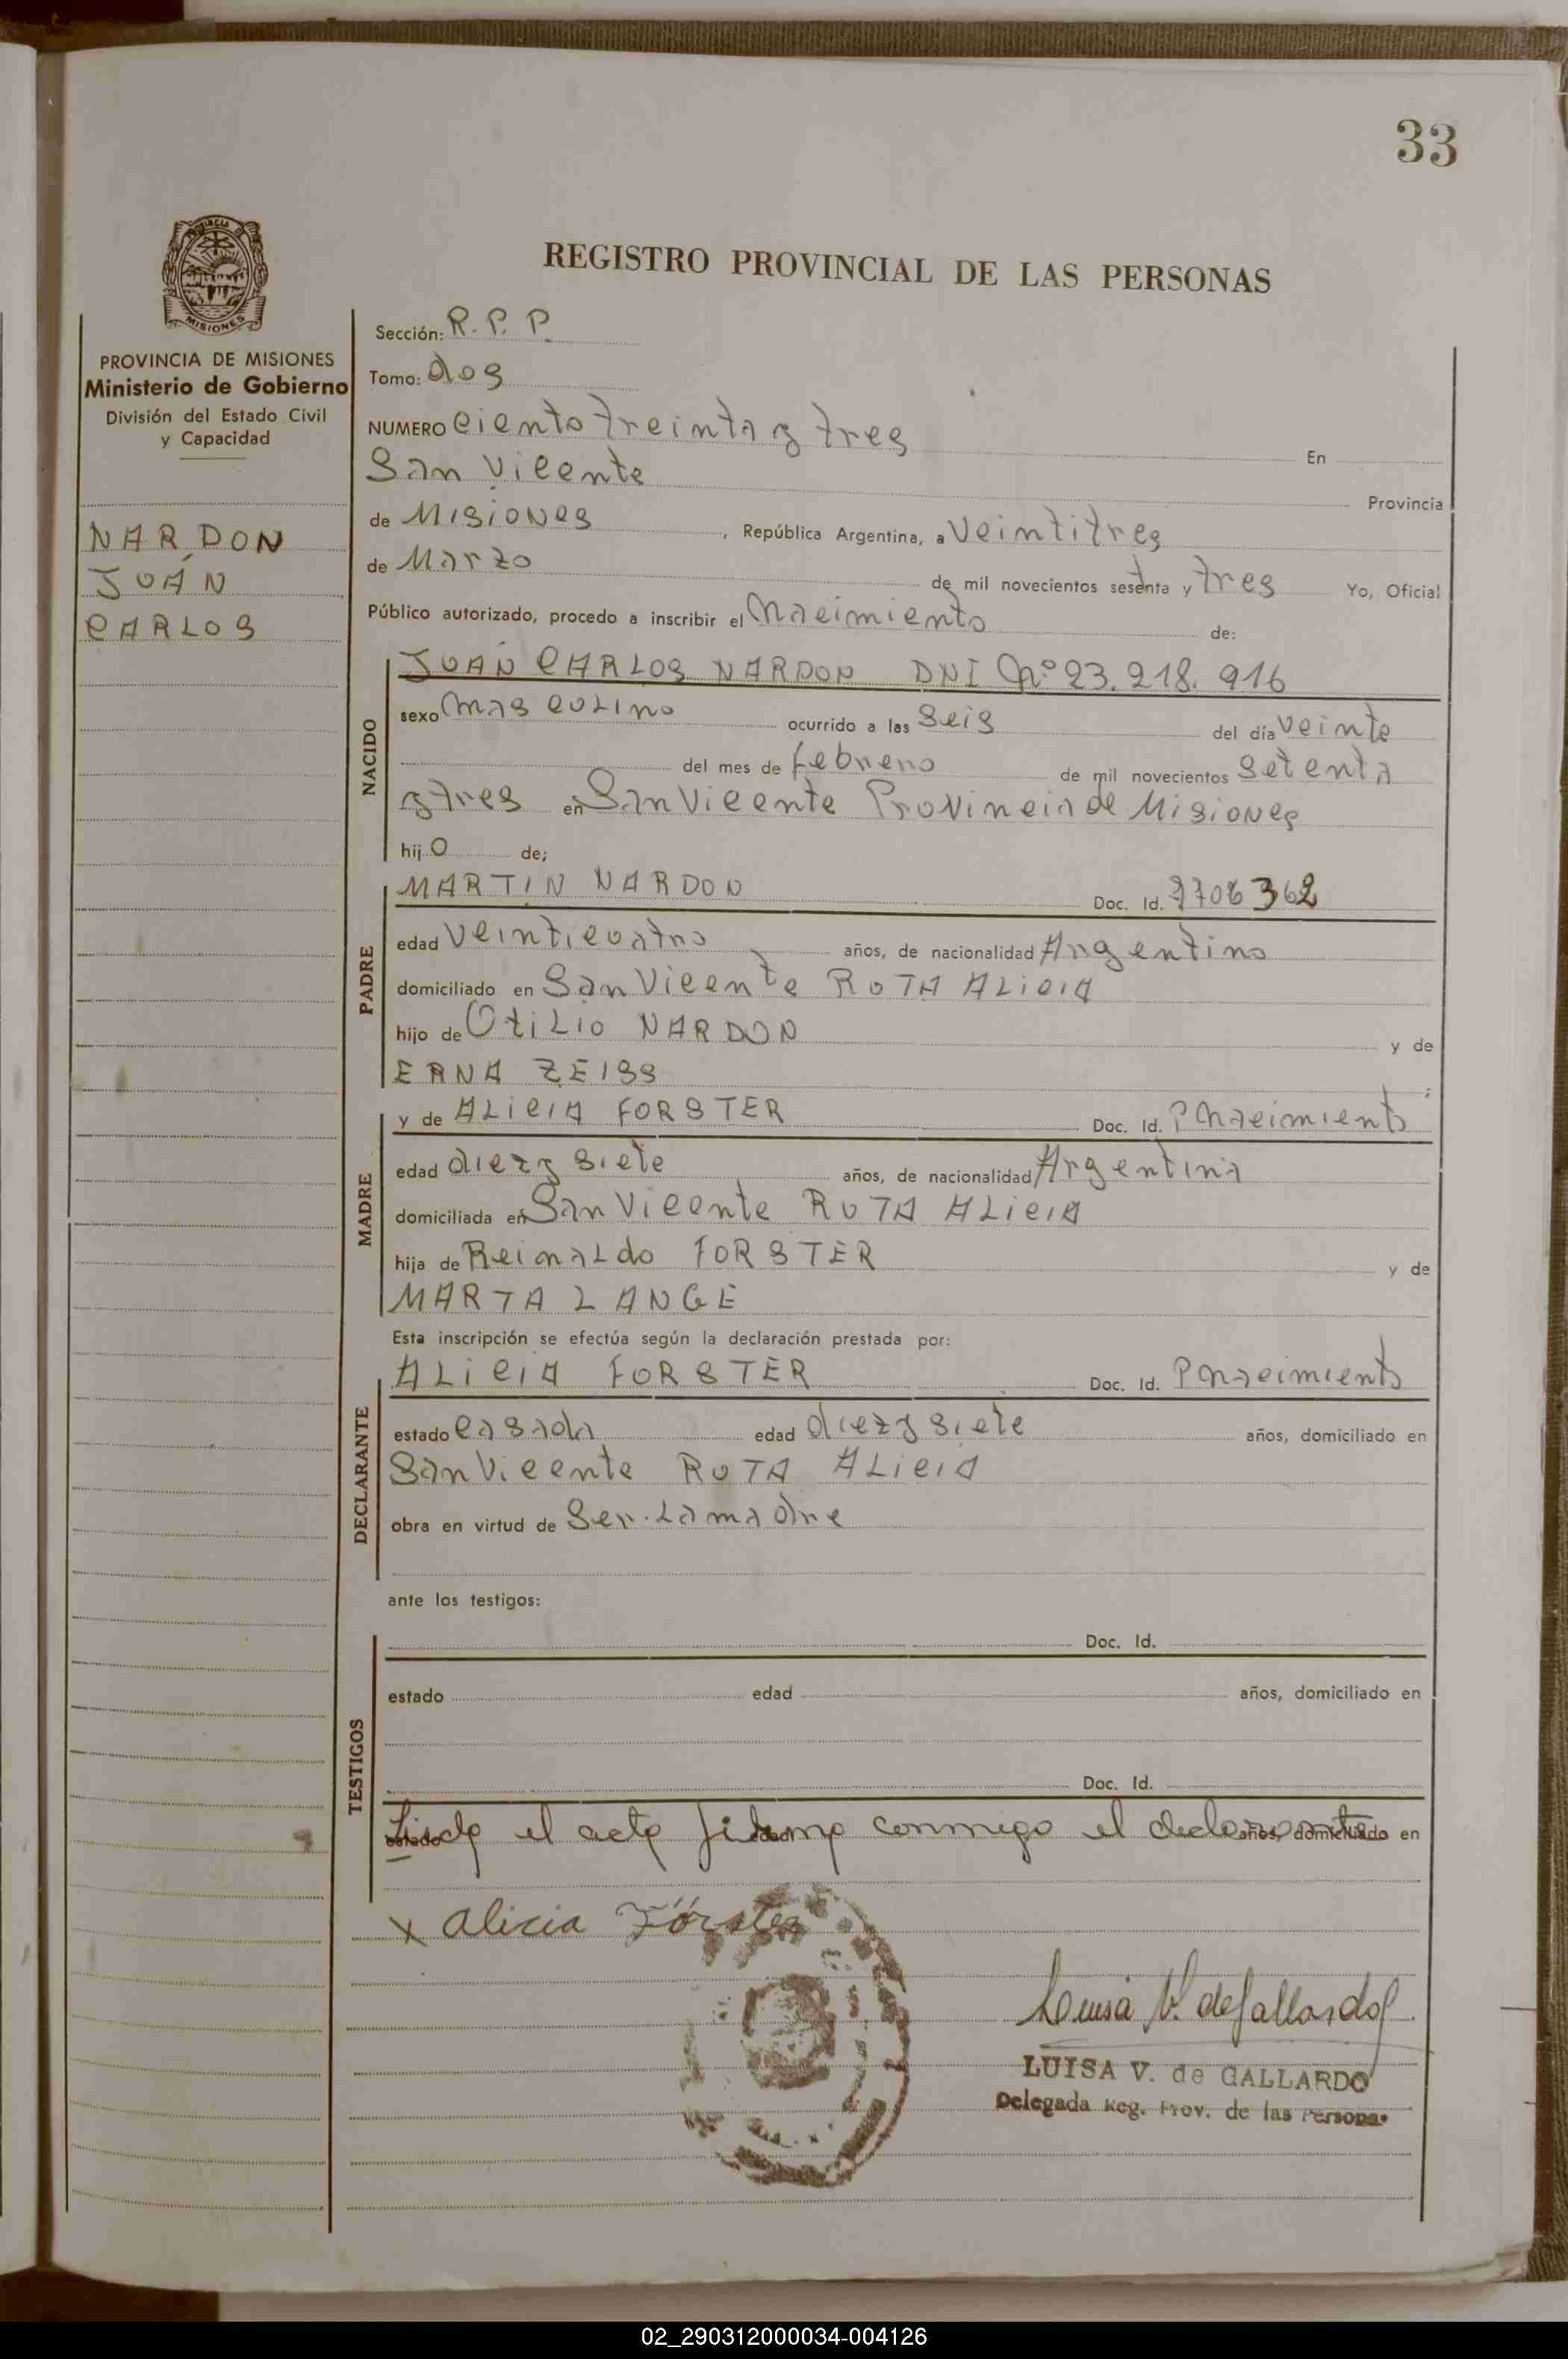 33
PROVINCIA DE
MISIONES
PROVINCIA DE MISIONES
Ministerio de Gobierno
División del Estado Civil
y Capacidad
NARDON
JUAN
CARLOS
REGISTRO PROVINCIAL DE LAS PERSONAS
Sección: R. P. P.
Tomo: dos
NUMERO ciento treinta y tres En
San Vicente Provincia
de Misiones, República Argentina, a veintitres
de Marzo de mil novecientos sesenta y tres Yo, Oficial
Público autorizado, procedo a inscribir el Nacimiento de:
NACIDO
JUAN CARLOS NARDON DNI Nº 23.218.916
sexo masculino ocurrido a las seis del día veinte
del mes de febrero de mil novecientos setenta
y tres en San Vicente Provincia de Misiones
hijo de;
PADRE
MARTIN NARDON Doc. Id. 7706362
edad veinticuatro años, de nacionalidad Argentino
domiciliado en San Vicente RUTA ALICIA
hijo de Otilio NARDON y de
ERNA ZEISS ;
MADRE
y de ALICIA FORSTER Doc. Id. P Nacimiento
edad diez y siete años, de nacionalidad Argentina
domiciliada en San Vicente RUTA ALICIA
hija de Reinaldo FORSTER y de
MARTA LANGE
Esta inscripción se efectúa según la declaración prestada por:
DECLARANTE
ALICIA FORSTER Doc. Id. P Nacimiento
estado casada edad diez y siete años, domiciliado en
San Vicente RUTA ALICIA
obra en virtud de Ser. La madre
ante los testigos:
TESTIGOS
Doc. Id.
estado edad años, domiciliado en
Doc. Id.
estado edad años, domiciliado en
Leido el acto firma conmigo el declarante
x Alicia Förster
Luisa V. de Gallardo
LUISA V. de GALLARDO
Delegada Reg. Prov. de las Personas
02_290312000034-004126